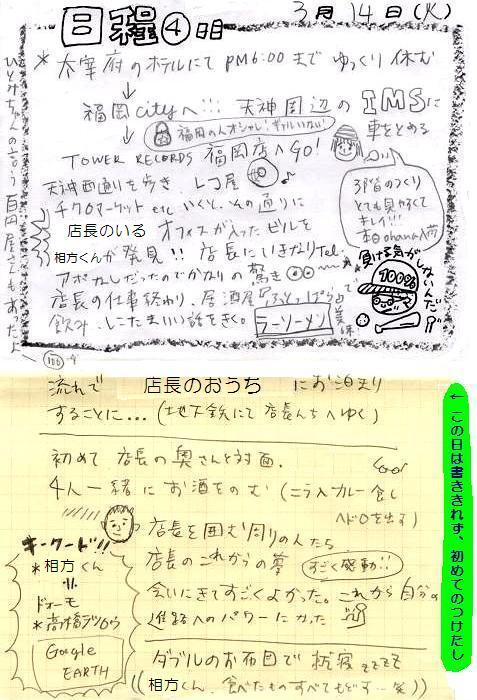 3月14日(火)
日程④日目
* 太宰府のホテルにて PM6:00まで ゆっくり休む
↓
福岡cityへ!!! 天神周辺の IMSに
車をとめる
↓
福岡の人オシャレ!ギャルいない!
TOWER RECORDS 福岡店へGO!
天神西通りを歩き、レコ屋
チクロマーケット etc いくと、その通りに
店長のいる オフィスが入ったビルを
相方くんが発見!! 店長にいきなりTel.
アポなしだったのでかなりの驚き
店長の仕事終わり、居酒屋
で
飲み、しこたまいい話をきく。
ラーソーメン
美味
3階のつくり
とても見やすくて
キレイ!!!
本日ohana入荷
*負ける気が
しないんだ
100%
ひとみちゃんの言う百円屋さんもあったよ
100
流れで 店長のおうち にお泊まり
することに…(地下鉄にて 店長んちへゆく)
初めて 店長の奥さんと対面.
4人一緒に お酒をのむ (ニラ入カレー食し
ヘドロを出す)
店長を囲む周りの人たち
店長のこれからの夢 すごく感動!!
会いにきてすごくよかった。これから自分の
進路へのパワーになった
ダブルのお布団で 就寝 zzzz
((相方くん、食べたものすべてもどす…笑))
キーワード!!
*相方くん
〃
ドォーモ
*高橋デツロウ
Google
EARTH
← この日は書ききれず、初めてのつけたし